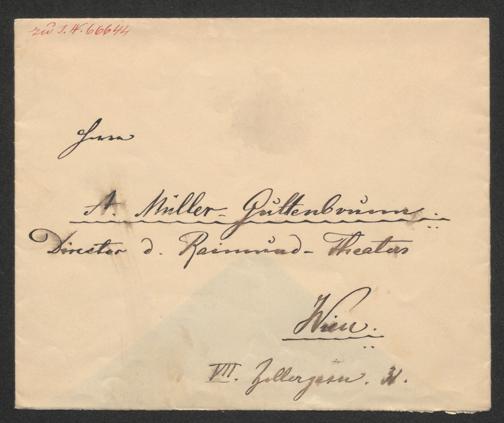 zu I.N. 66644
Herrn
A. Müller-Guttenbrunn.
Director d. Raimund-Theaters
Wien.
VII. Zollergasse. 31.